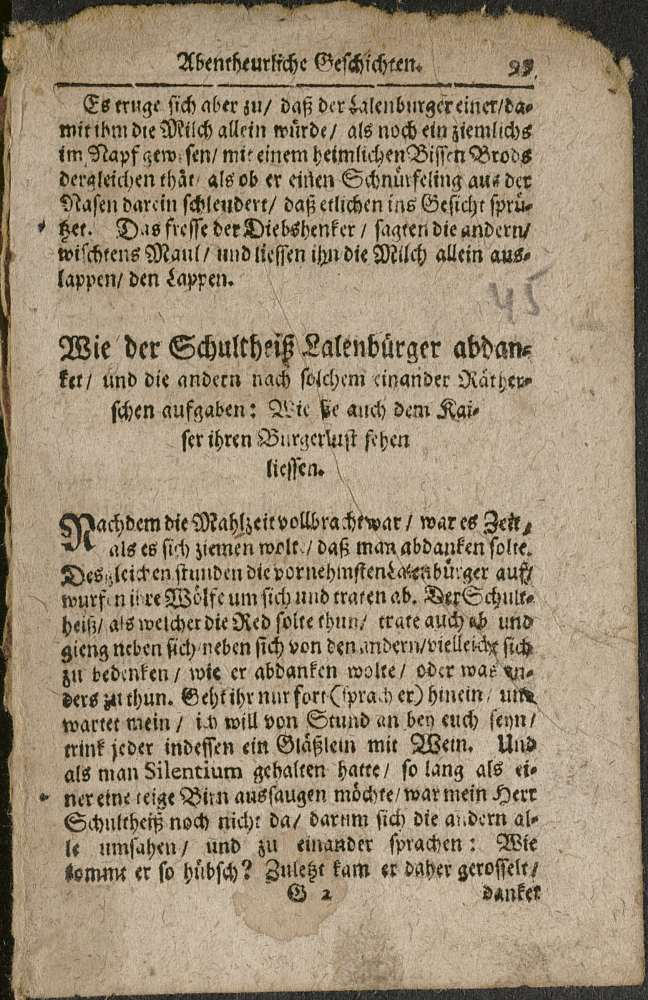 Abentheurliche Geschichten. 99.
Es truge sich aber zu/ daß der Lalenburger einer/ da-
mit ihm die Milch allein würde/ als noch ein ziemlichs
im Napf gewesen/ mit einem heimlichen Bissen Brods
dergleichen thät/ als ob er einen Schnürfeling aus der
Nasen darein schleudert/ daß etlichen ins Gesicht sprü-
tzet. Das fresse der Diebshenker/ sagten die andern/
wischtens Maul/ und liessen ihn die Milch allein aus-
lappen/ den Lappen.
45
Wie der Schultheiß Lalenbürger abdan-
ket/ und die andern nach solchem einander Räther-
schen aufgaben: Wie sie auch dem Kai-
ser ihren Burgerlust sehen
liessen.
Nachdem die Mahlzeit vollbracht war/ war es Zeit/
als es sich ziemen wolt/ daß man abdanken solte.
Desgleichen stunden die vornehmsten Lalenbürger auf/
wurfen ihre Wölfe um sich und traten ab. Der Schult-
heiß/ als welcher die Red solte thun/ trate auch ab und
gieng neben sich neben sich von den andern/ vielleicht sich
zu bedenken/ wie er abdanken wolte/ oder was an-
ders zu thun. Geht ihr nur fort (sprach er) hinein/ und
wartet mein/ ich will von Stund an bey euch seyn/
trink jeder indessen ein Gläßlein mit Wein. Und
als man Silentium gehalten hatte/ so lang als ei-
ner eine teige Birn aussaugen möchte/ war mein Herr
Schultheiß noch nicht da/ darum sich die andern al-
le umsahen/ und zu einander sprachen: Wie
kommt er so hübsch? Zuletzt kam er daher gerosselt/
G 2 danket